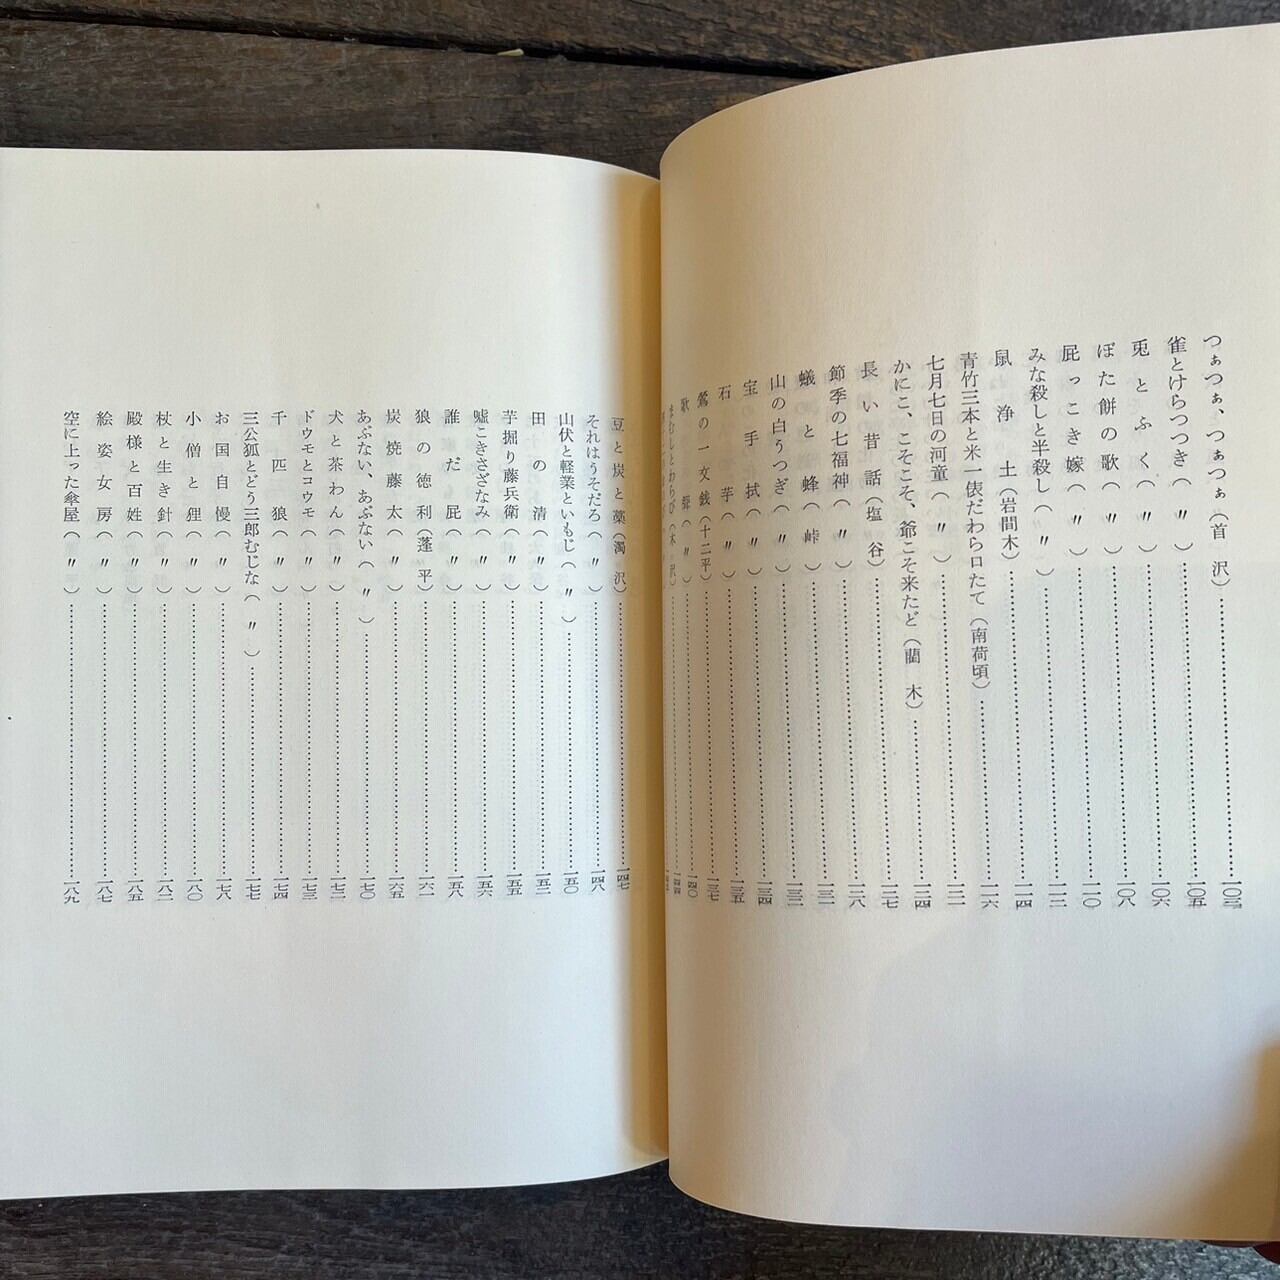 つぁつぁ、つぁつぁ(首沢)……一〇三
雀とけらつつき(〃)……一〇五
兎とふく(〃)……一〇六
ぼた餅の歌(〃)……一〇八
屁っこき嫁(〃)……一一〇
みな殺しと半殺し(〃)……一一二
鼠浄土(岩間木)……一一四
青竹三本と米一俵だわら口たて(南荷頃)……一一六
七月七日の河童(〃)……一二一
かにこ、こそこそ、爺こそ来たど(藺木)……一二四
長い昔話(塩谷)……一二七
節季の七福神(〃)……一二八
蟻と蜂(峠)……一三一
山の白うつぎ(〃)……一三二
宝手拭(〃)……一三四
石芋(〃)……一三五
鶯の一文銭(十二平)……一三七
歌聟(〃)……一四〇
まむしとわらび(木沢)……一四四
豆と炭と藁(濁沢)……一四七
それはうそだろ(〃)……一四八
山伏と軽業といもじ(〃)……一五〇
田の清(〃)……一五二
芋掘り藤兵衛(〃)……一五五
嘘こきさざなみ(〃)……一五六
誰だ屁(〃)……一五八
狼の徳利(蓬平)……一六一
炭焼藤太(〃)……一六五
あぶない、あぶない(〃)……一七〇
犬と茶わん(〃)……一七二
ドウモとコウモ(〃)……一七三
千匹狼(〃)……一七四
三公狐とどう三郎むじな(〃)……一七七
お国自慢(〃)……一七八
小僧と狸(〃)……一八〇
杖と生き針(〃)……一八二
殿様と百姓(〃)……一八五
絵姿女房(〃)……一八七
空に上った傘屋(〃)……一八九